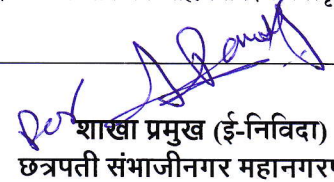 शाखा प्रमुख (ई-निविदा)
छत्रपती संभाजीनगर महानगरप